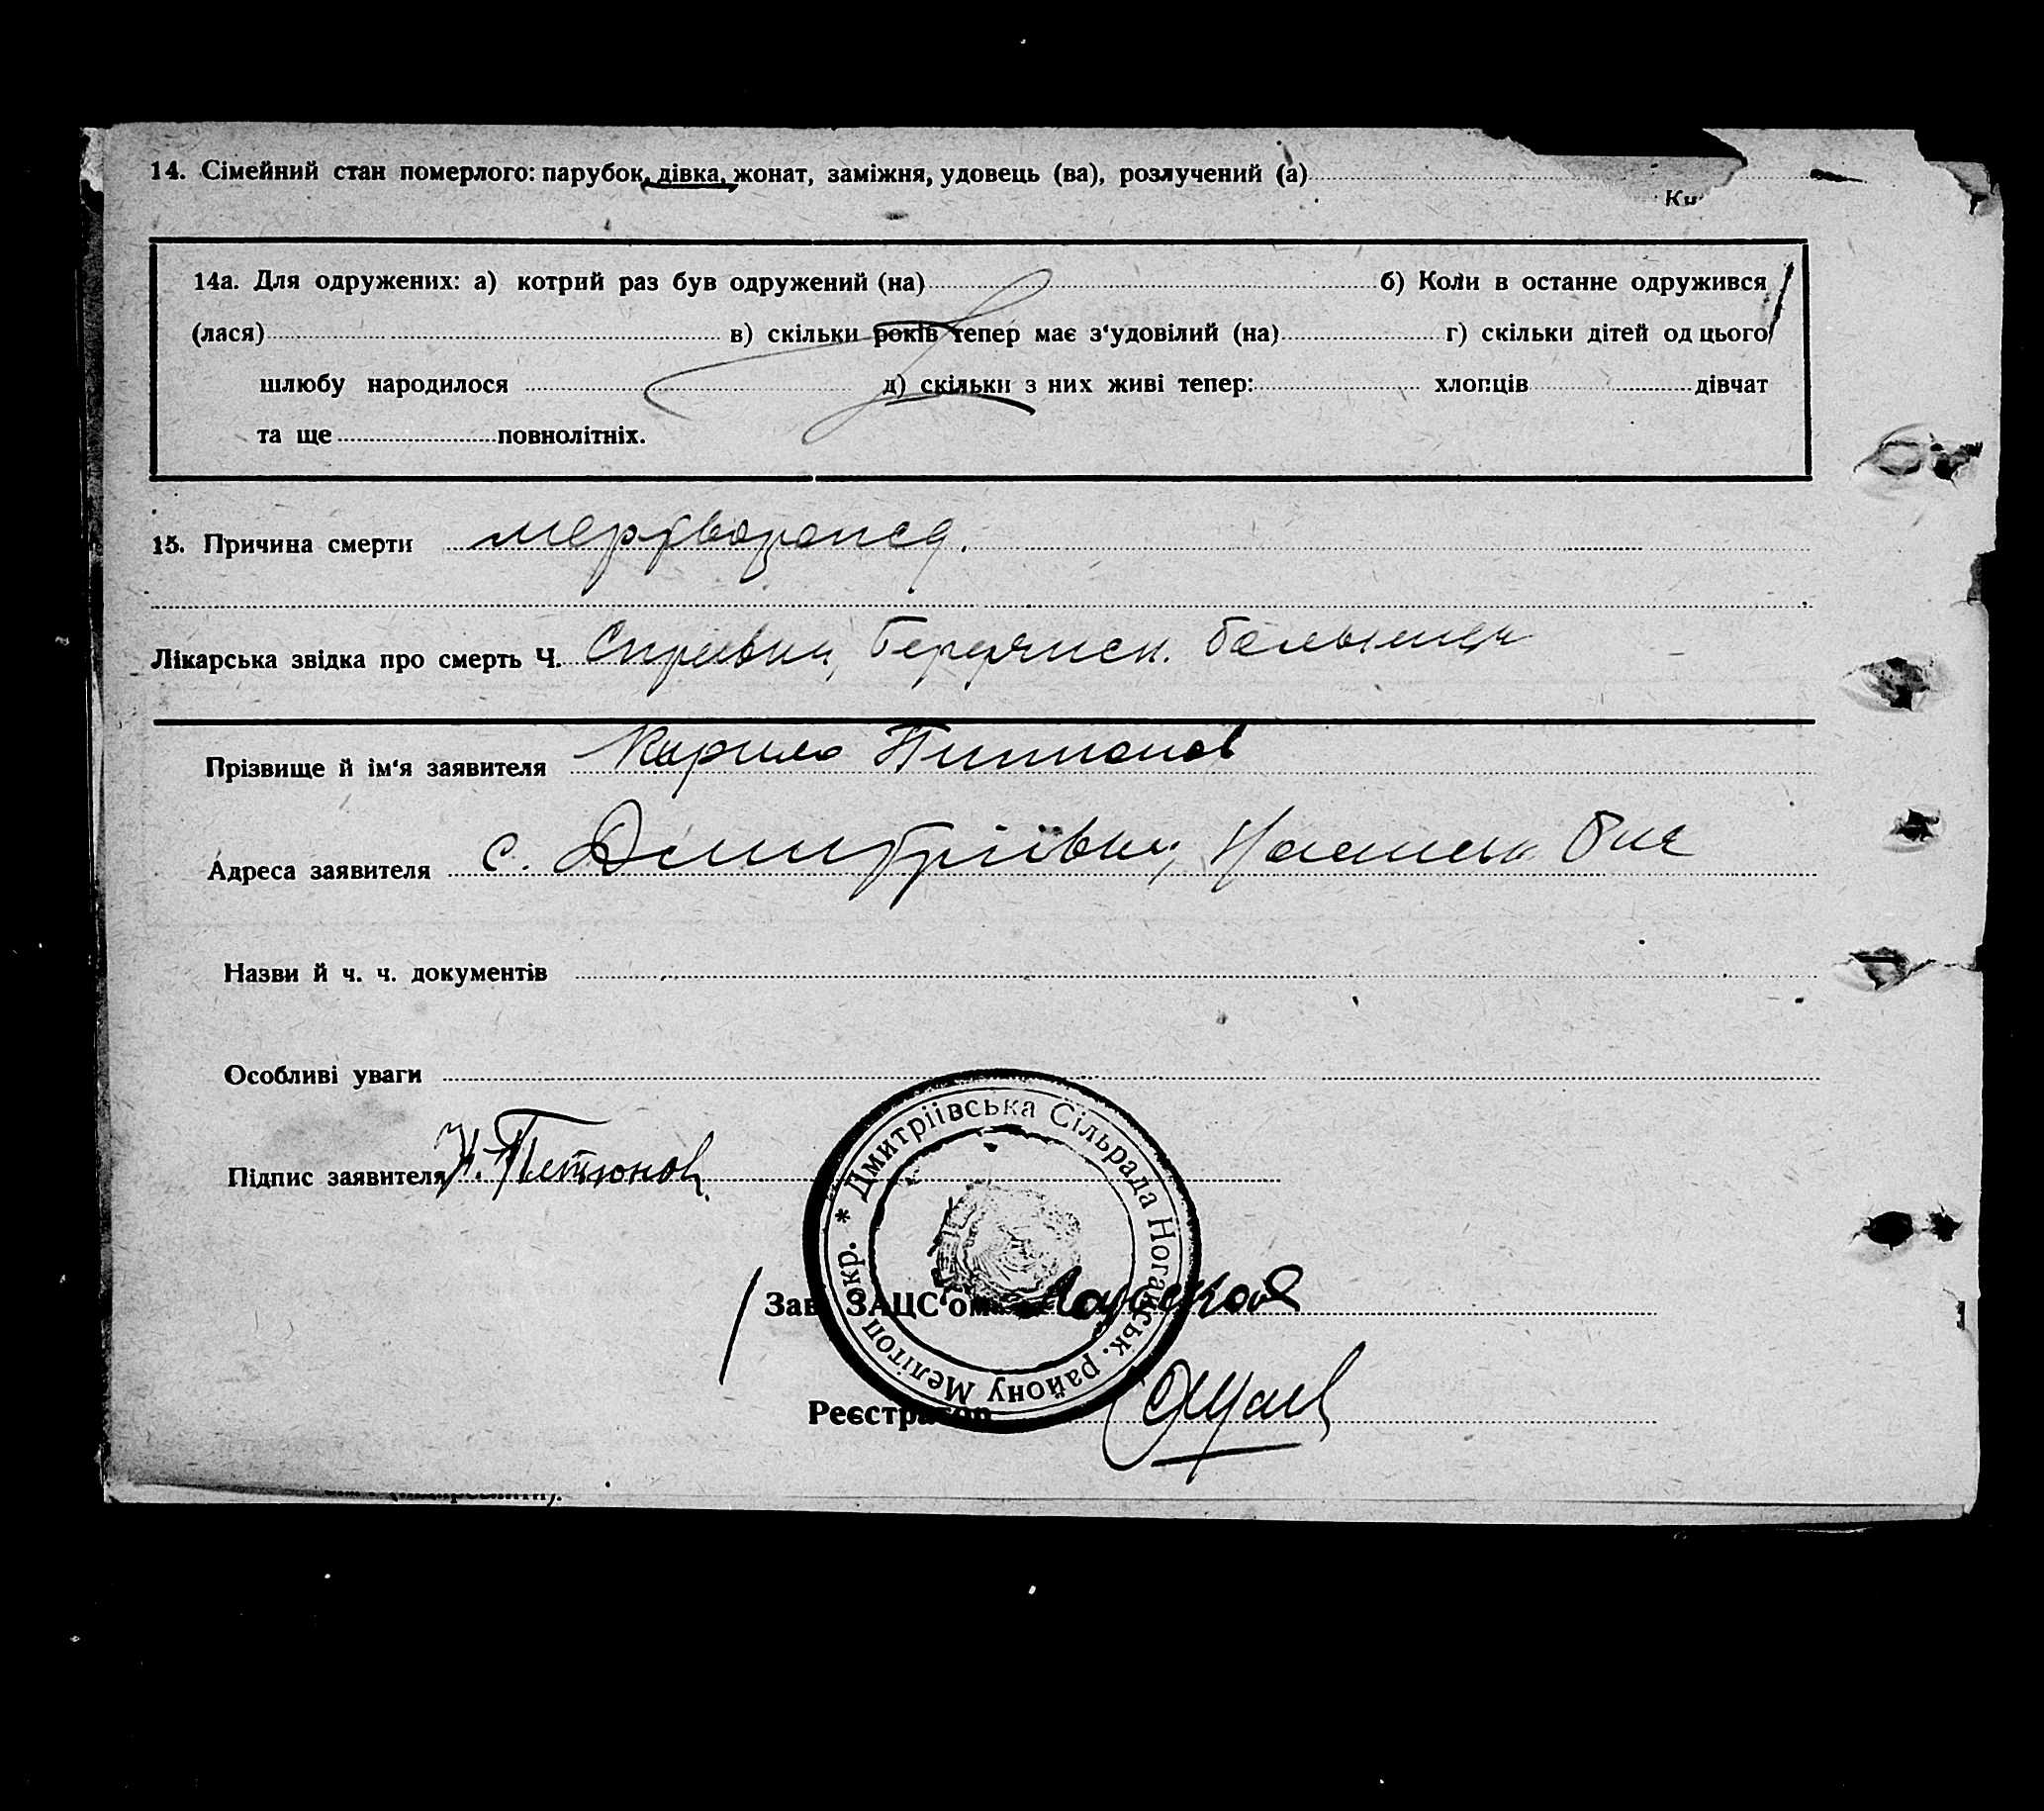 14. Сімейний стан померлого: парубок, дівка, жонат, заміжня, удовець (ва), розлучений (а)
14а. Для одружених: а) котрий раз був одружений (на) б) Коли в останне одружився
(лася) в) скільки років тепер має з‘удовілий (на) г) скільки дітей од цього
шлюбу народилося д) скільки з них живі тепер: хлопців дівчат
та ще повнолітніх.
15. Причина смерти
Лікарська звідка про смерть Ч.
Прізвище й ім‘я заявителя Кирило
Адреса заявителя с.
Назви й ч. ч. документів
Особливі уваги
Підпис заявителя
Дмитріївська Сільрада Ногайськ. району Мелітоп. окр. *
Зав. ЗАЦС‘ом
Реєстратор